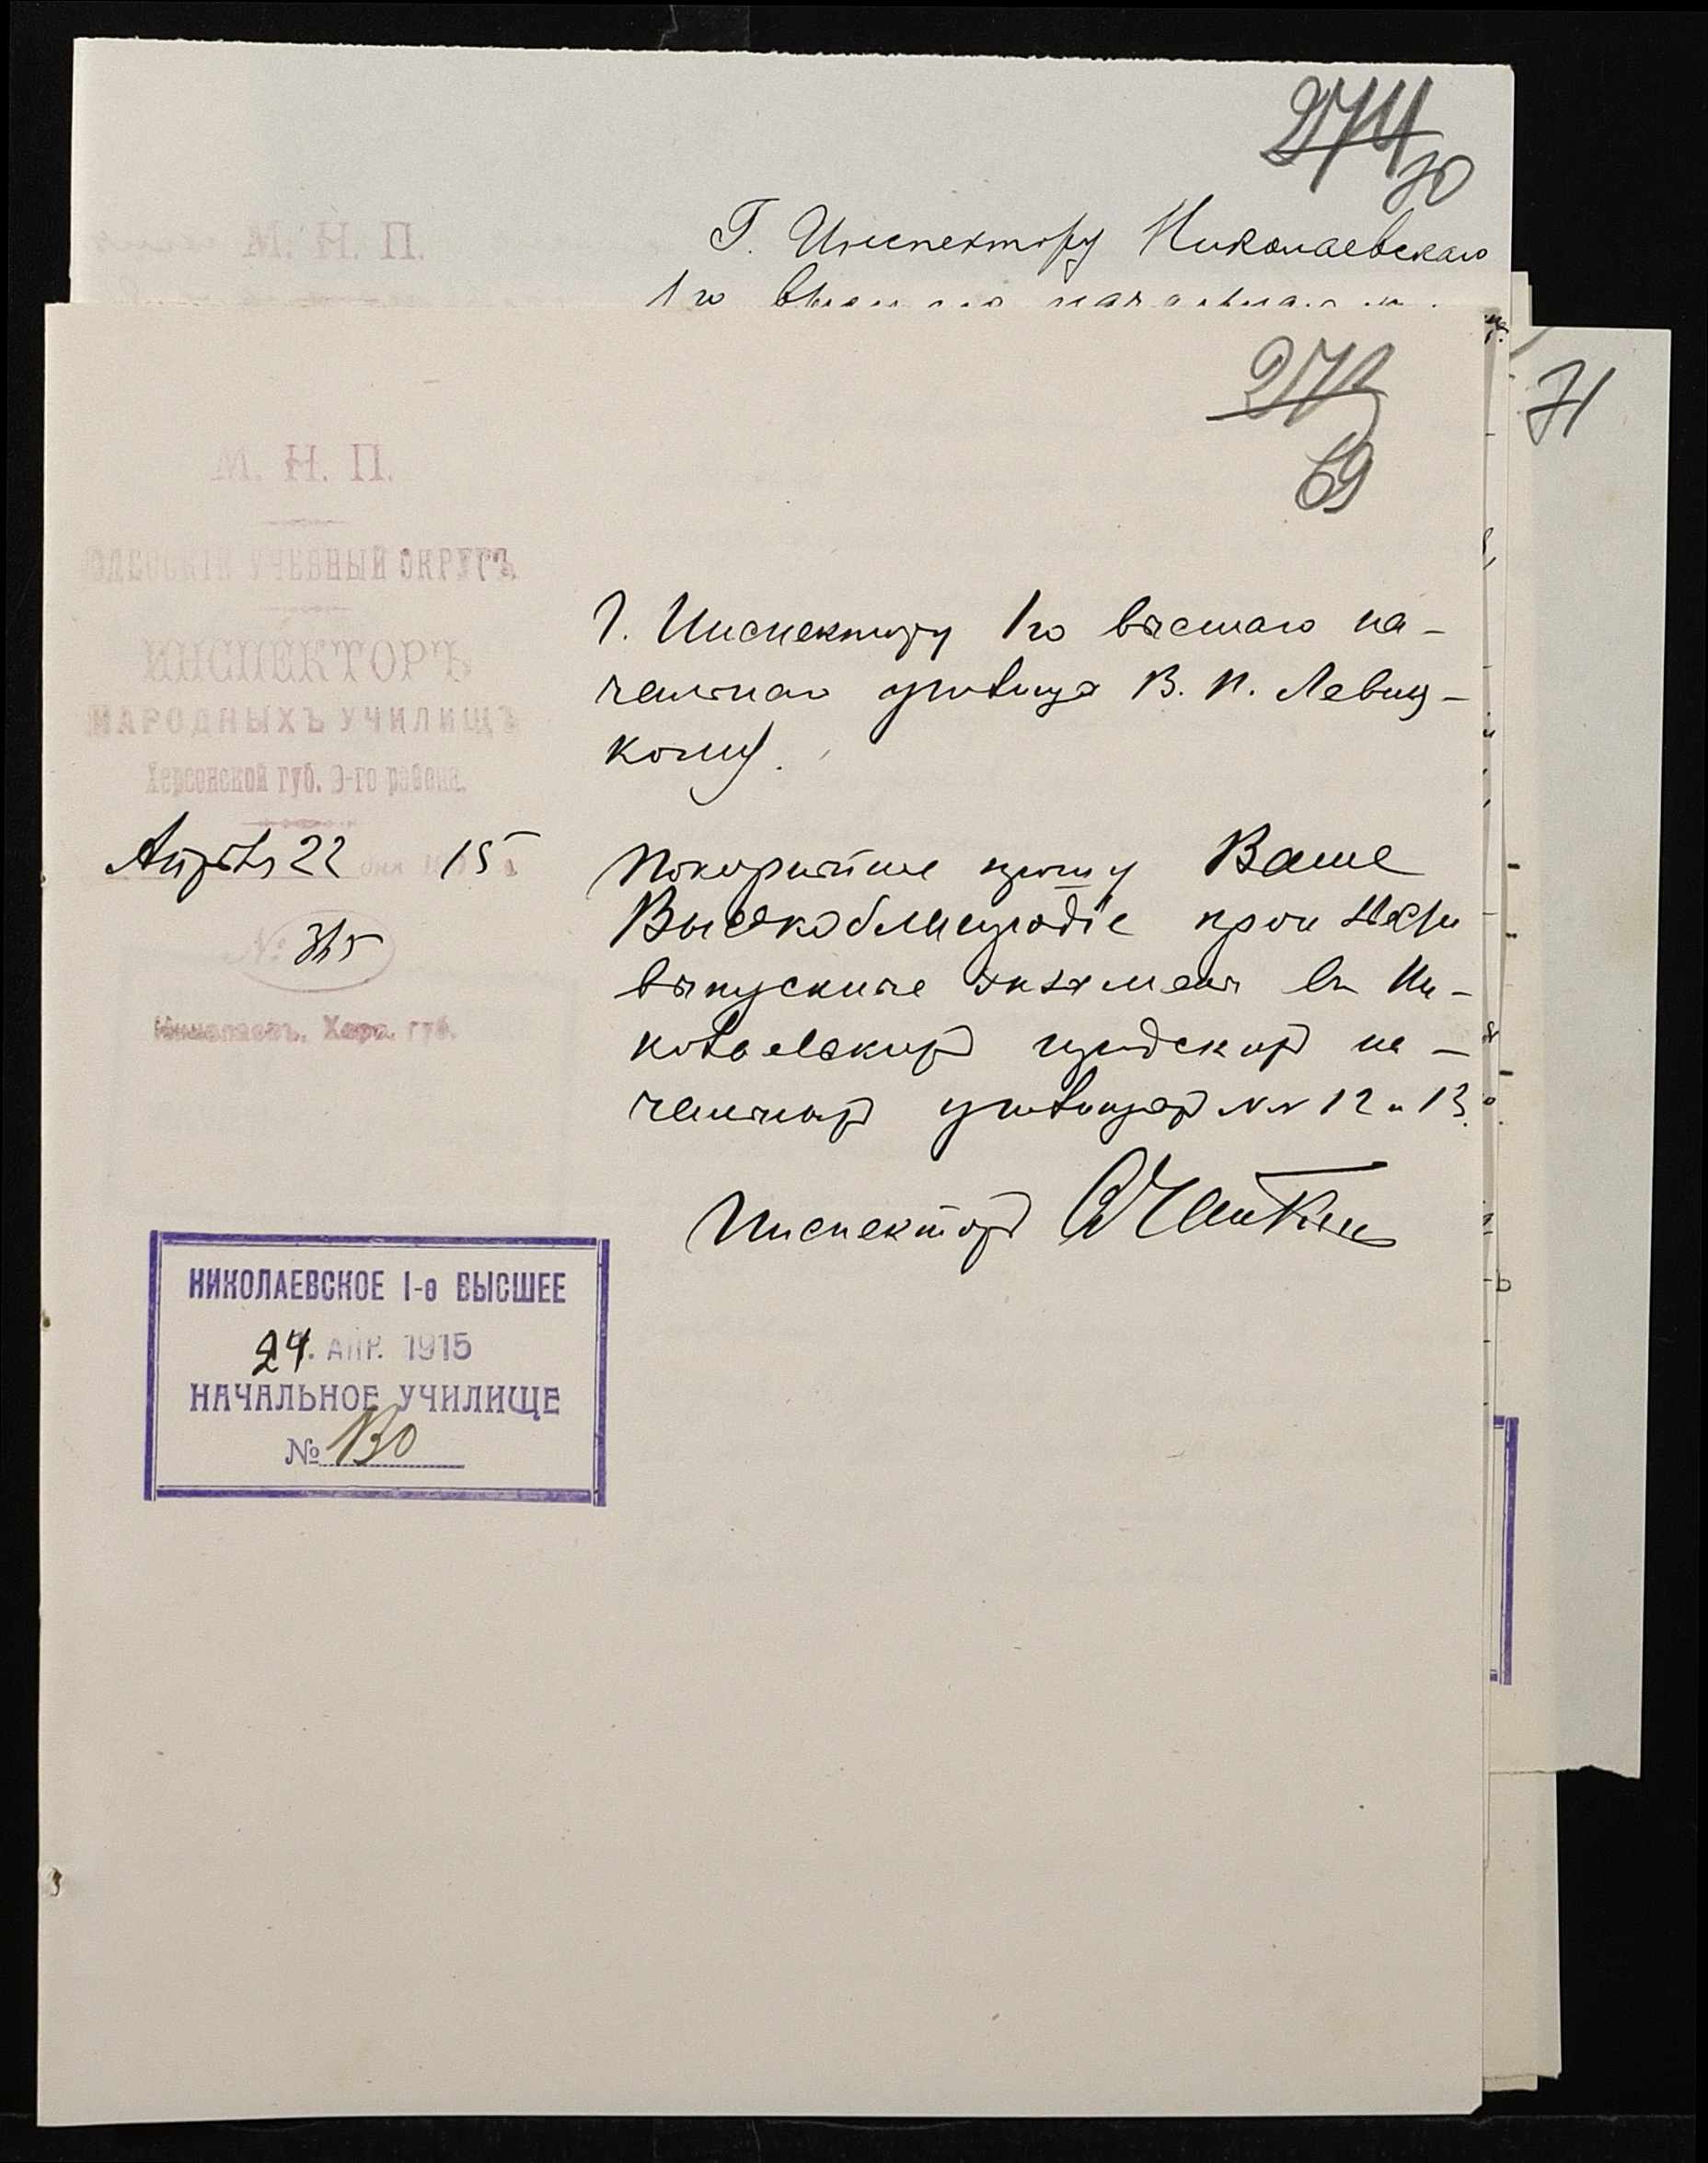 274
70
Г. Инспектору Николаевскаго
1го
М. Н. П.
273
69
71
М. Н. П.
ОДЕССКІЙ УЧЕБНЫЙ ОКРУГЪ
ИНСПЕКТОРЪ
НАРОДНЫХЪ УЧИЛИЩЪ
Херсонской губ. 9-го района.
Апрѣля 22 дня 1915
№ 365
Николаевъ, Херс. губ.
Г. Инспектору 1го высшаго на-
чальнаго училища В. П. Левиц-
кому.
Покорнѣйше прошу Ваше
Высокоблагородіе произвести
выпускные экзамены въ Ни-
колаевскихъ городскихъ на-
чальныхъ училищахъ №№ 12 и 13.
Инспекторъ
НИКОЛАЕВСКОЕ I-е ВЫСШЕЕ
24. АПР. 1915
НАЧАЛЬНОЕ УЧИЛИЩЕ
№ 130